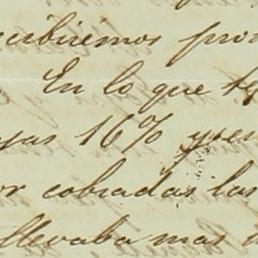 ecibiremos pron
. En lo que te
yas 16% y
or cobradas las
llevaba mas